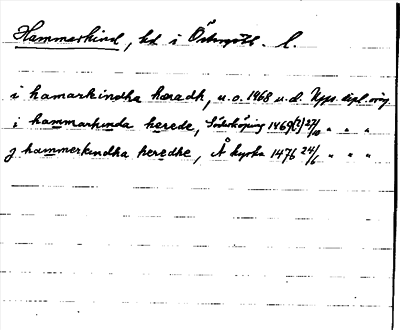 Hammarkind, hd i Östergötl. l.
i hamarkindha hæradh, u.o. 1468 u.d. Upps. dipl. orig
i hammarkinda herede, Söderköping 1469(?) 27/10 " " "
j hammerkindha heredhe, Å kyrka 1476 24/6 " " "